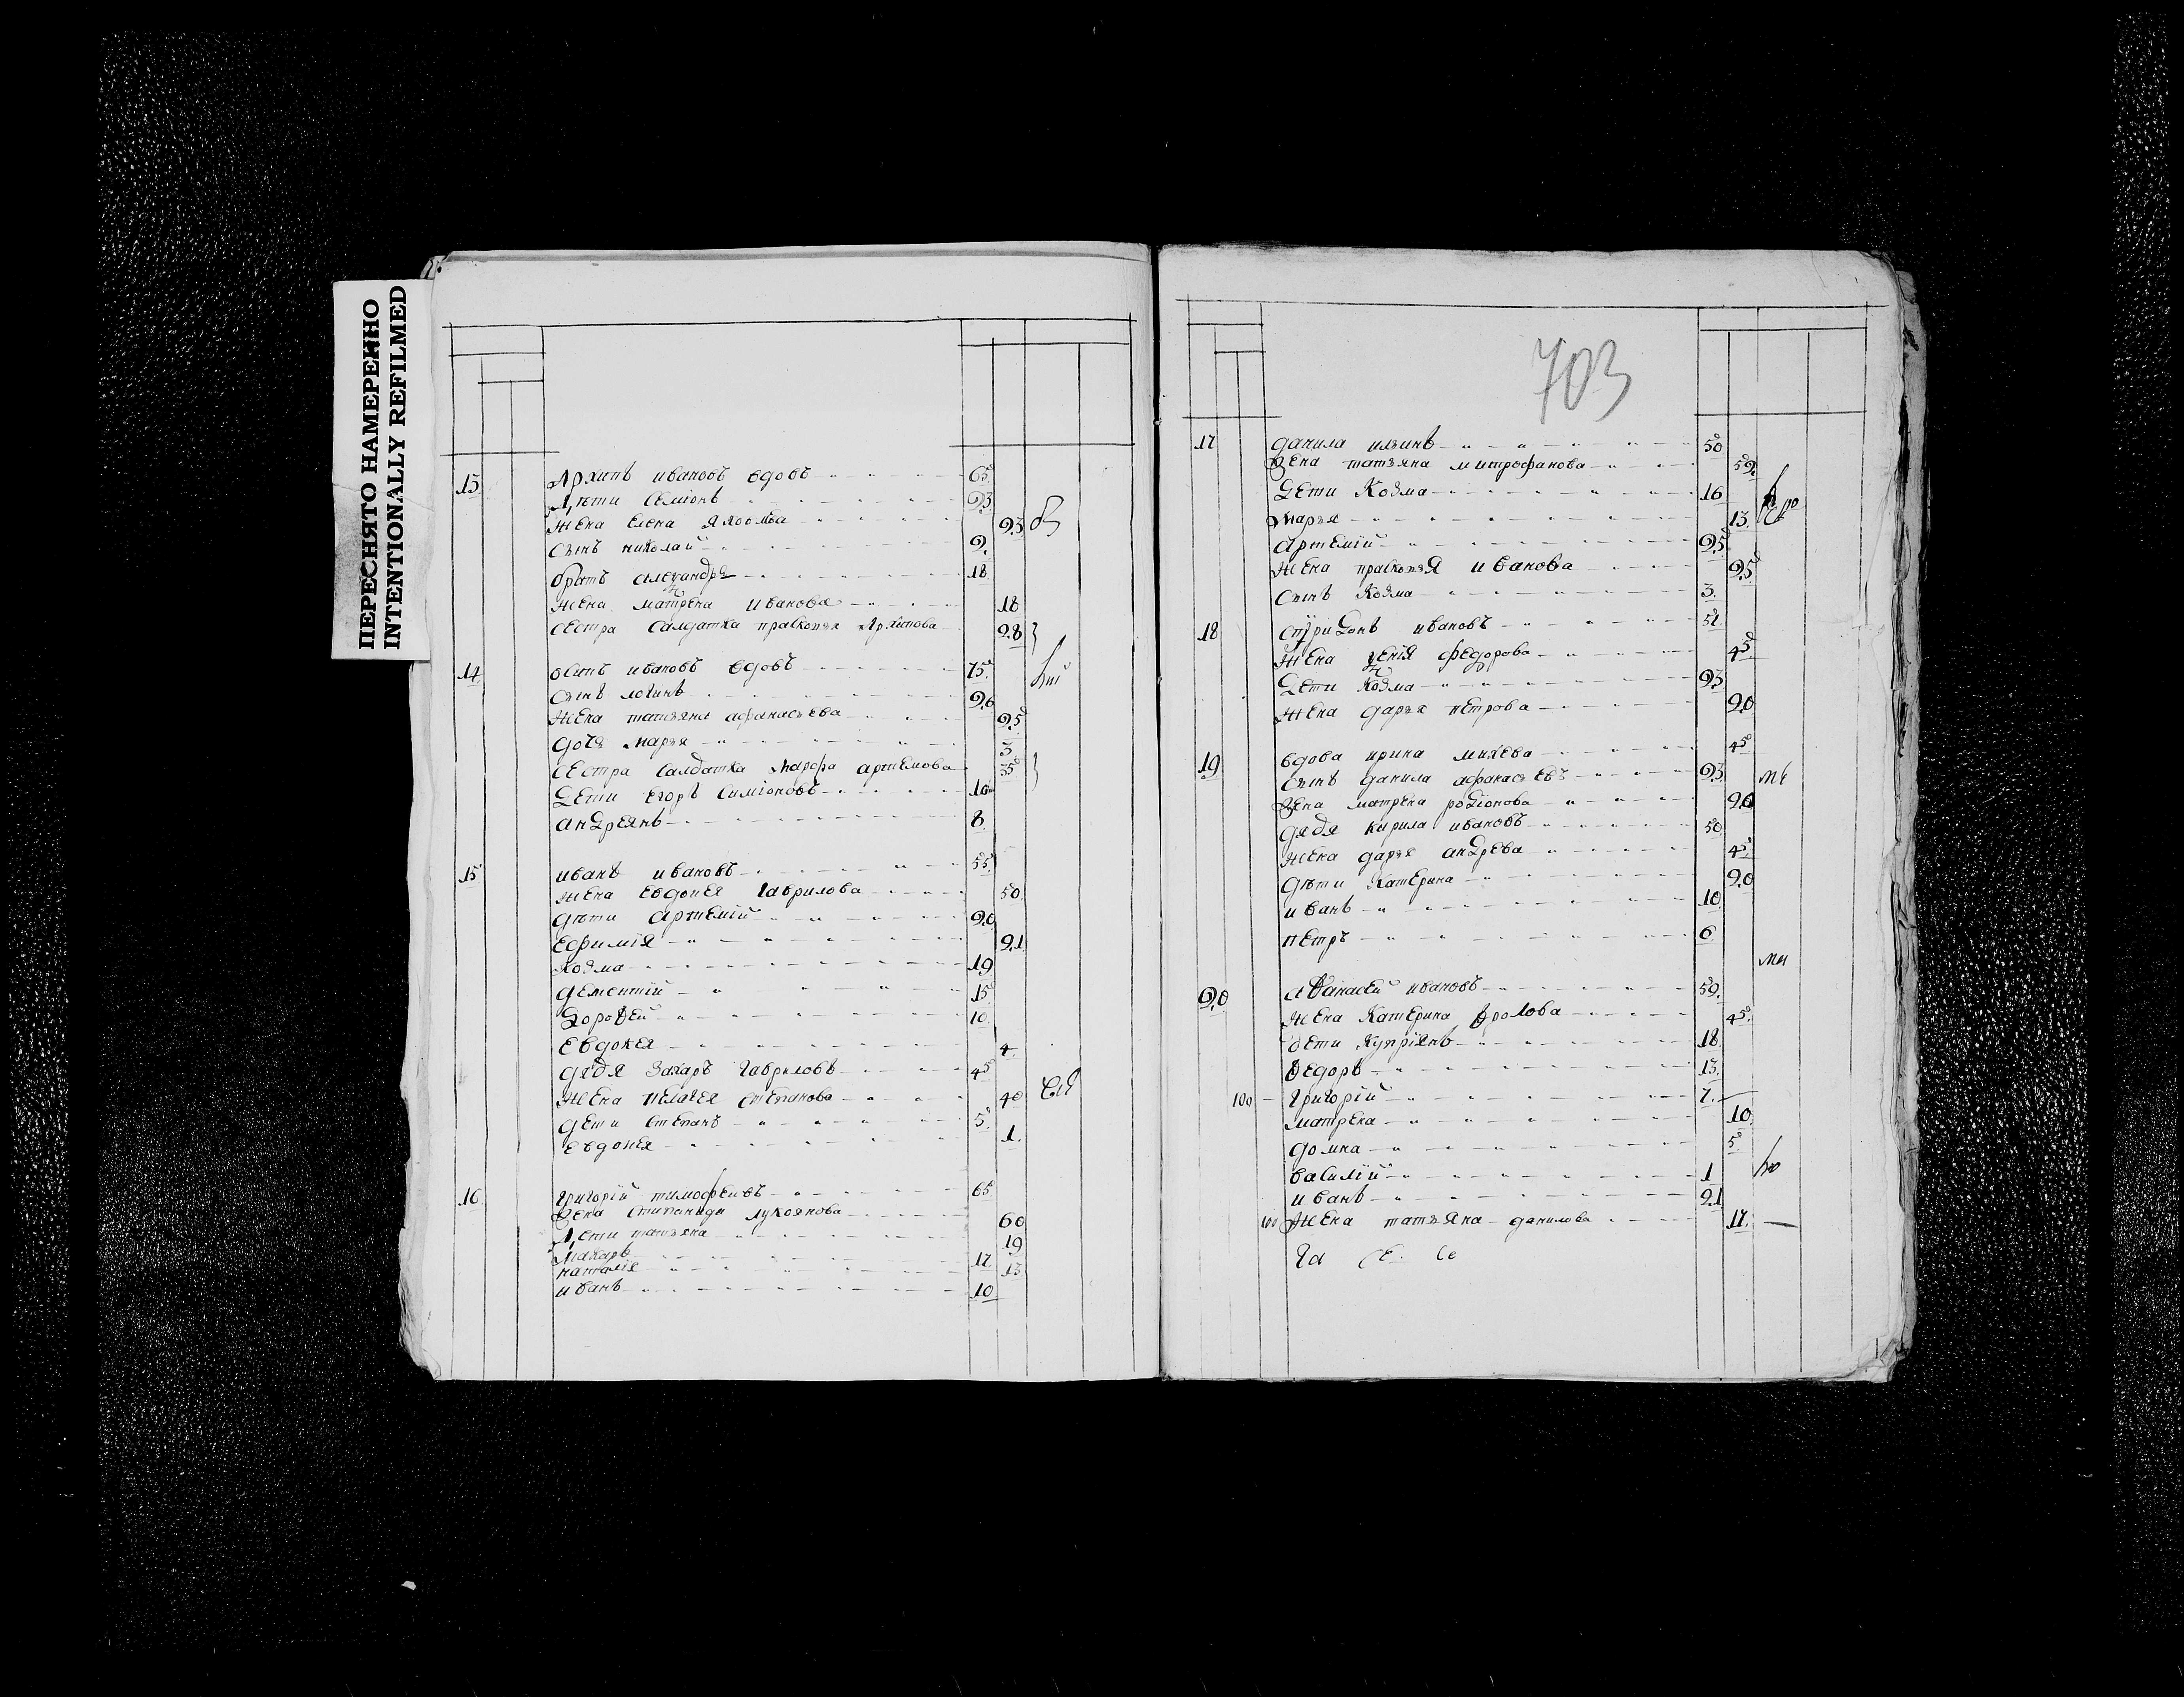 ПЕРЕСНЯТО НАМЕРЕННО
INTENTIONALLY REFILMED
13 Архипъ ивановъ вдовъ 65
Дѣти Семіонъ 23
жена Елена 23
сынъ николай 2
братъ алеѯандръ 18
жена матрена иванова 18
сестра салдатка праскопья Архипова 28
14 осипъ ивановъ вдовъ 75
сынъ логинъ 26
жена татьяна афанасьева 25
дочь марья 3
сестра салдатка марфа артемова 35
дети егоръ симіоновъ 10
андреянъ 8
15 иванъ ивановъ 55
жена Евдокея гаврилова 50
дѣти артемій 20
ефимія 21
козма 19
дементий 15
дороѳей 10
евдокея 4
дядя захаръ гавриловъ 45
жена пелагея степанова 40
дети степанъ 5
евдокея 1
16 григорій тимофеевъ 65
жена степанида лукоянова 60
Дети татьяна 19
макаръ 17
наталія 13
иванъ 10
703
17 данила ильинъ 50
жена татьяна митрофанова 52
дети козма 16
марья 13
артемій 25
жена праскопья иванова 25
сынъ козма 3
18 спиридонъ ивановъ 52
жена федорова 45
дети козма 23
жена дарья петрова 20
19 вдова ирина михева 45
сынъ данила афанасьевъ 23
жена матрена родіонова 20
дядя кирила ивановъ 50
жена дарья андрева 45
дѣти катерина 20
иванъ 10
петръ 6
20 аѳанасей ивановъ 52
жена катерина ѳролова 45
дети купріянъ 18
ѳедоръ 13
100 григорій 7
матрена 10
домна 5
василій 1
иванъ 21
100 жена татьяна данилова 17